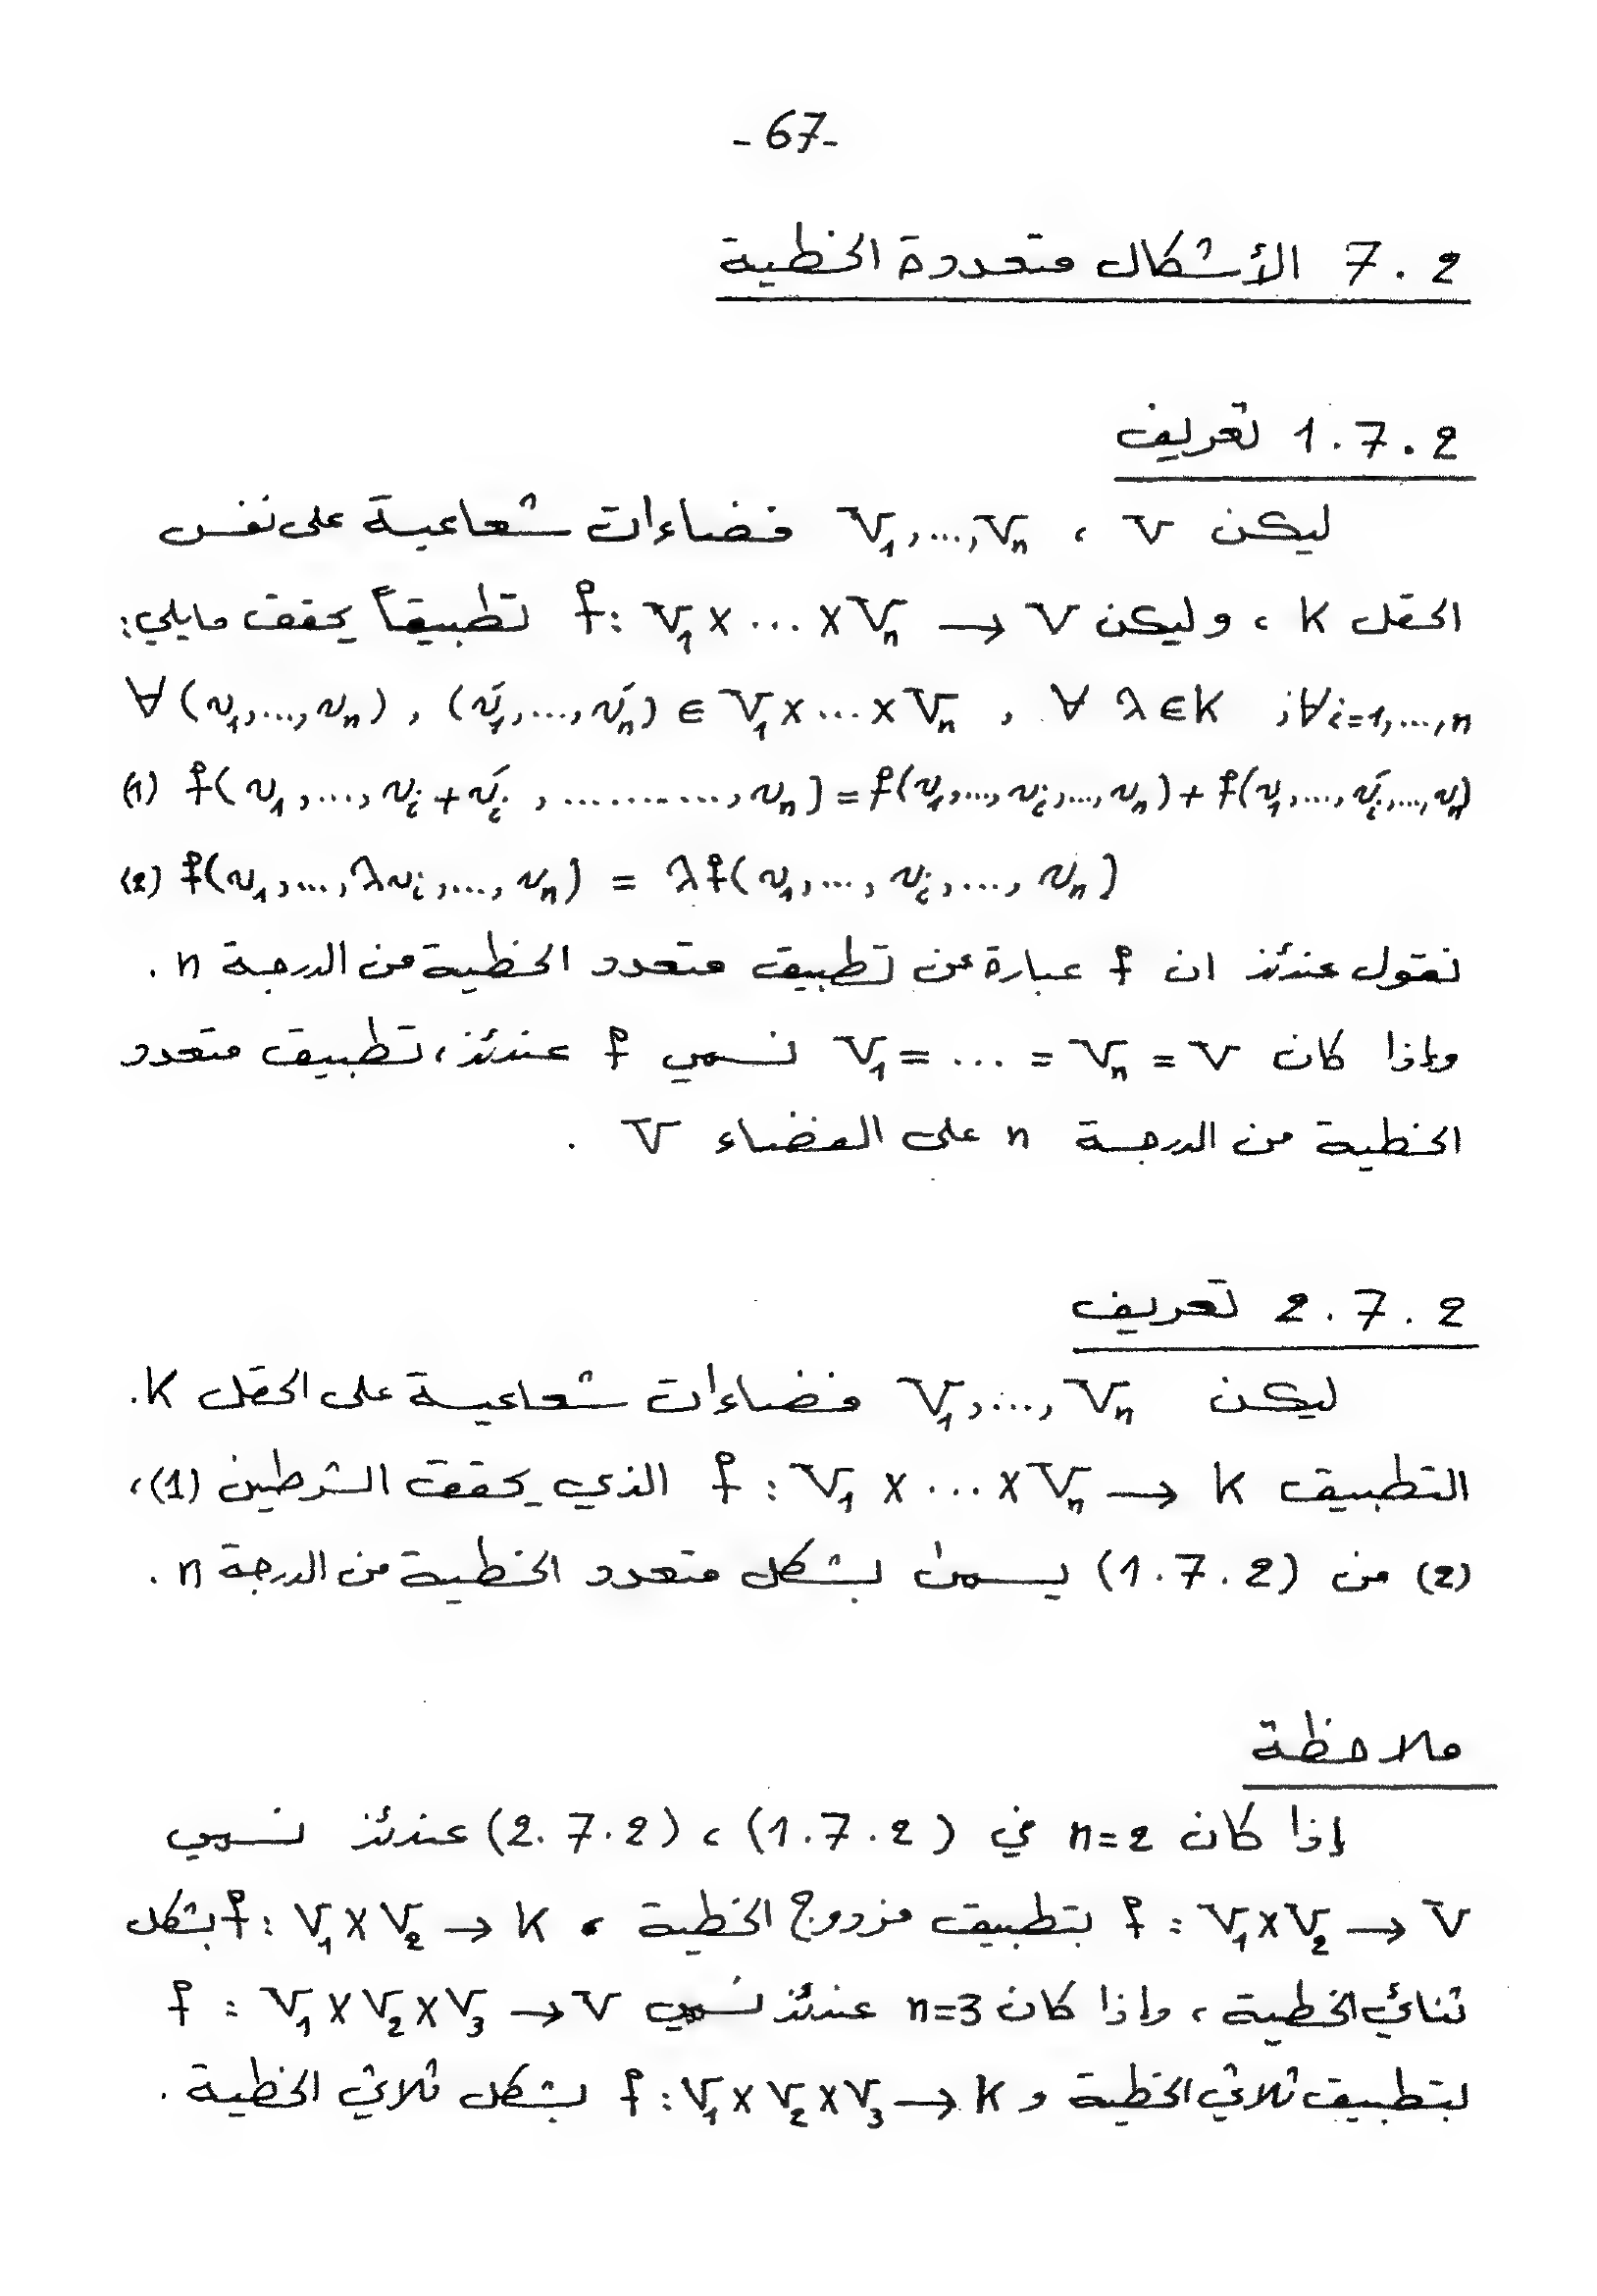 - 67 -
7.2 الأشكال متعددة الخطية
1.7.2 تعريف
ليكن V ، V₁,...,Vₙ فضاءات شعاعية على نفس
الحقل K ، وليكن f: V₁ x ... x Vₙ → V تطبيقاً يحقق مايلي:
∀ (v₁,...,vₙ) , (v₁́,...,vₙ́) ∈ V₁ x ... x Vₙ , ∀ λ ∈ K ; ∀ i=1,...,n
(1) f(v₁,...,vᵢ+vᵢ́,..........,vₙ) = f(v₁,...,vᵢ,...,vₙ) + f(v₁,...,vᵢ́,...,vₙ)
(2) f(v₁,...,λvᵢ,...,vₙ) = λf(v₁,...,vᵢ,...,vₙ)
نقول عندئذ ان f عبارة عن تطبيق متعدد الخطية من الدرجة n .
وإذا كان V₁ = ... = Vₙ = V نسمي f عندئذ، تطبيق متعدد
الخطية من الدرجة n على الفضاء V .
2.7.2 تعريف
ليكن V₁,...,Vₙ فضاءات شعاعية على الحقل K.
التطبيق f : V₁ x ... x Vₙ → K الذي يحقق الشرطين (1)،
(2) من (1.7.2) يسمى بشكل متعدد الخطية من الدرجة n .
ملاحظة
إذا كان n=2 في (1.7.2) ، (2.7.2) عندئذ نسمي
f : V₁xV₂ → V بتطبيق مزدوج الخطية ، f: V₁xV₂ → K بشكل
ثنائي الخطية ، وإذا كان n=3 عندئذ نسمي f : V₁xV₂xV₃ → V
بتطبيق ثلاثي الخطية و f: V₁xV₂xV₃ → K بشكل ثلاثي الخطية .